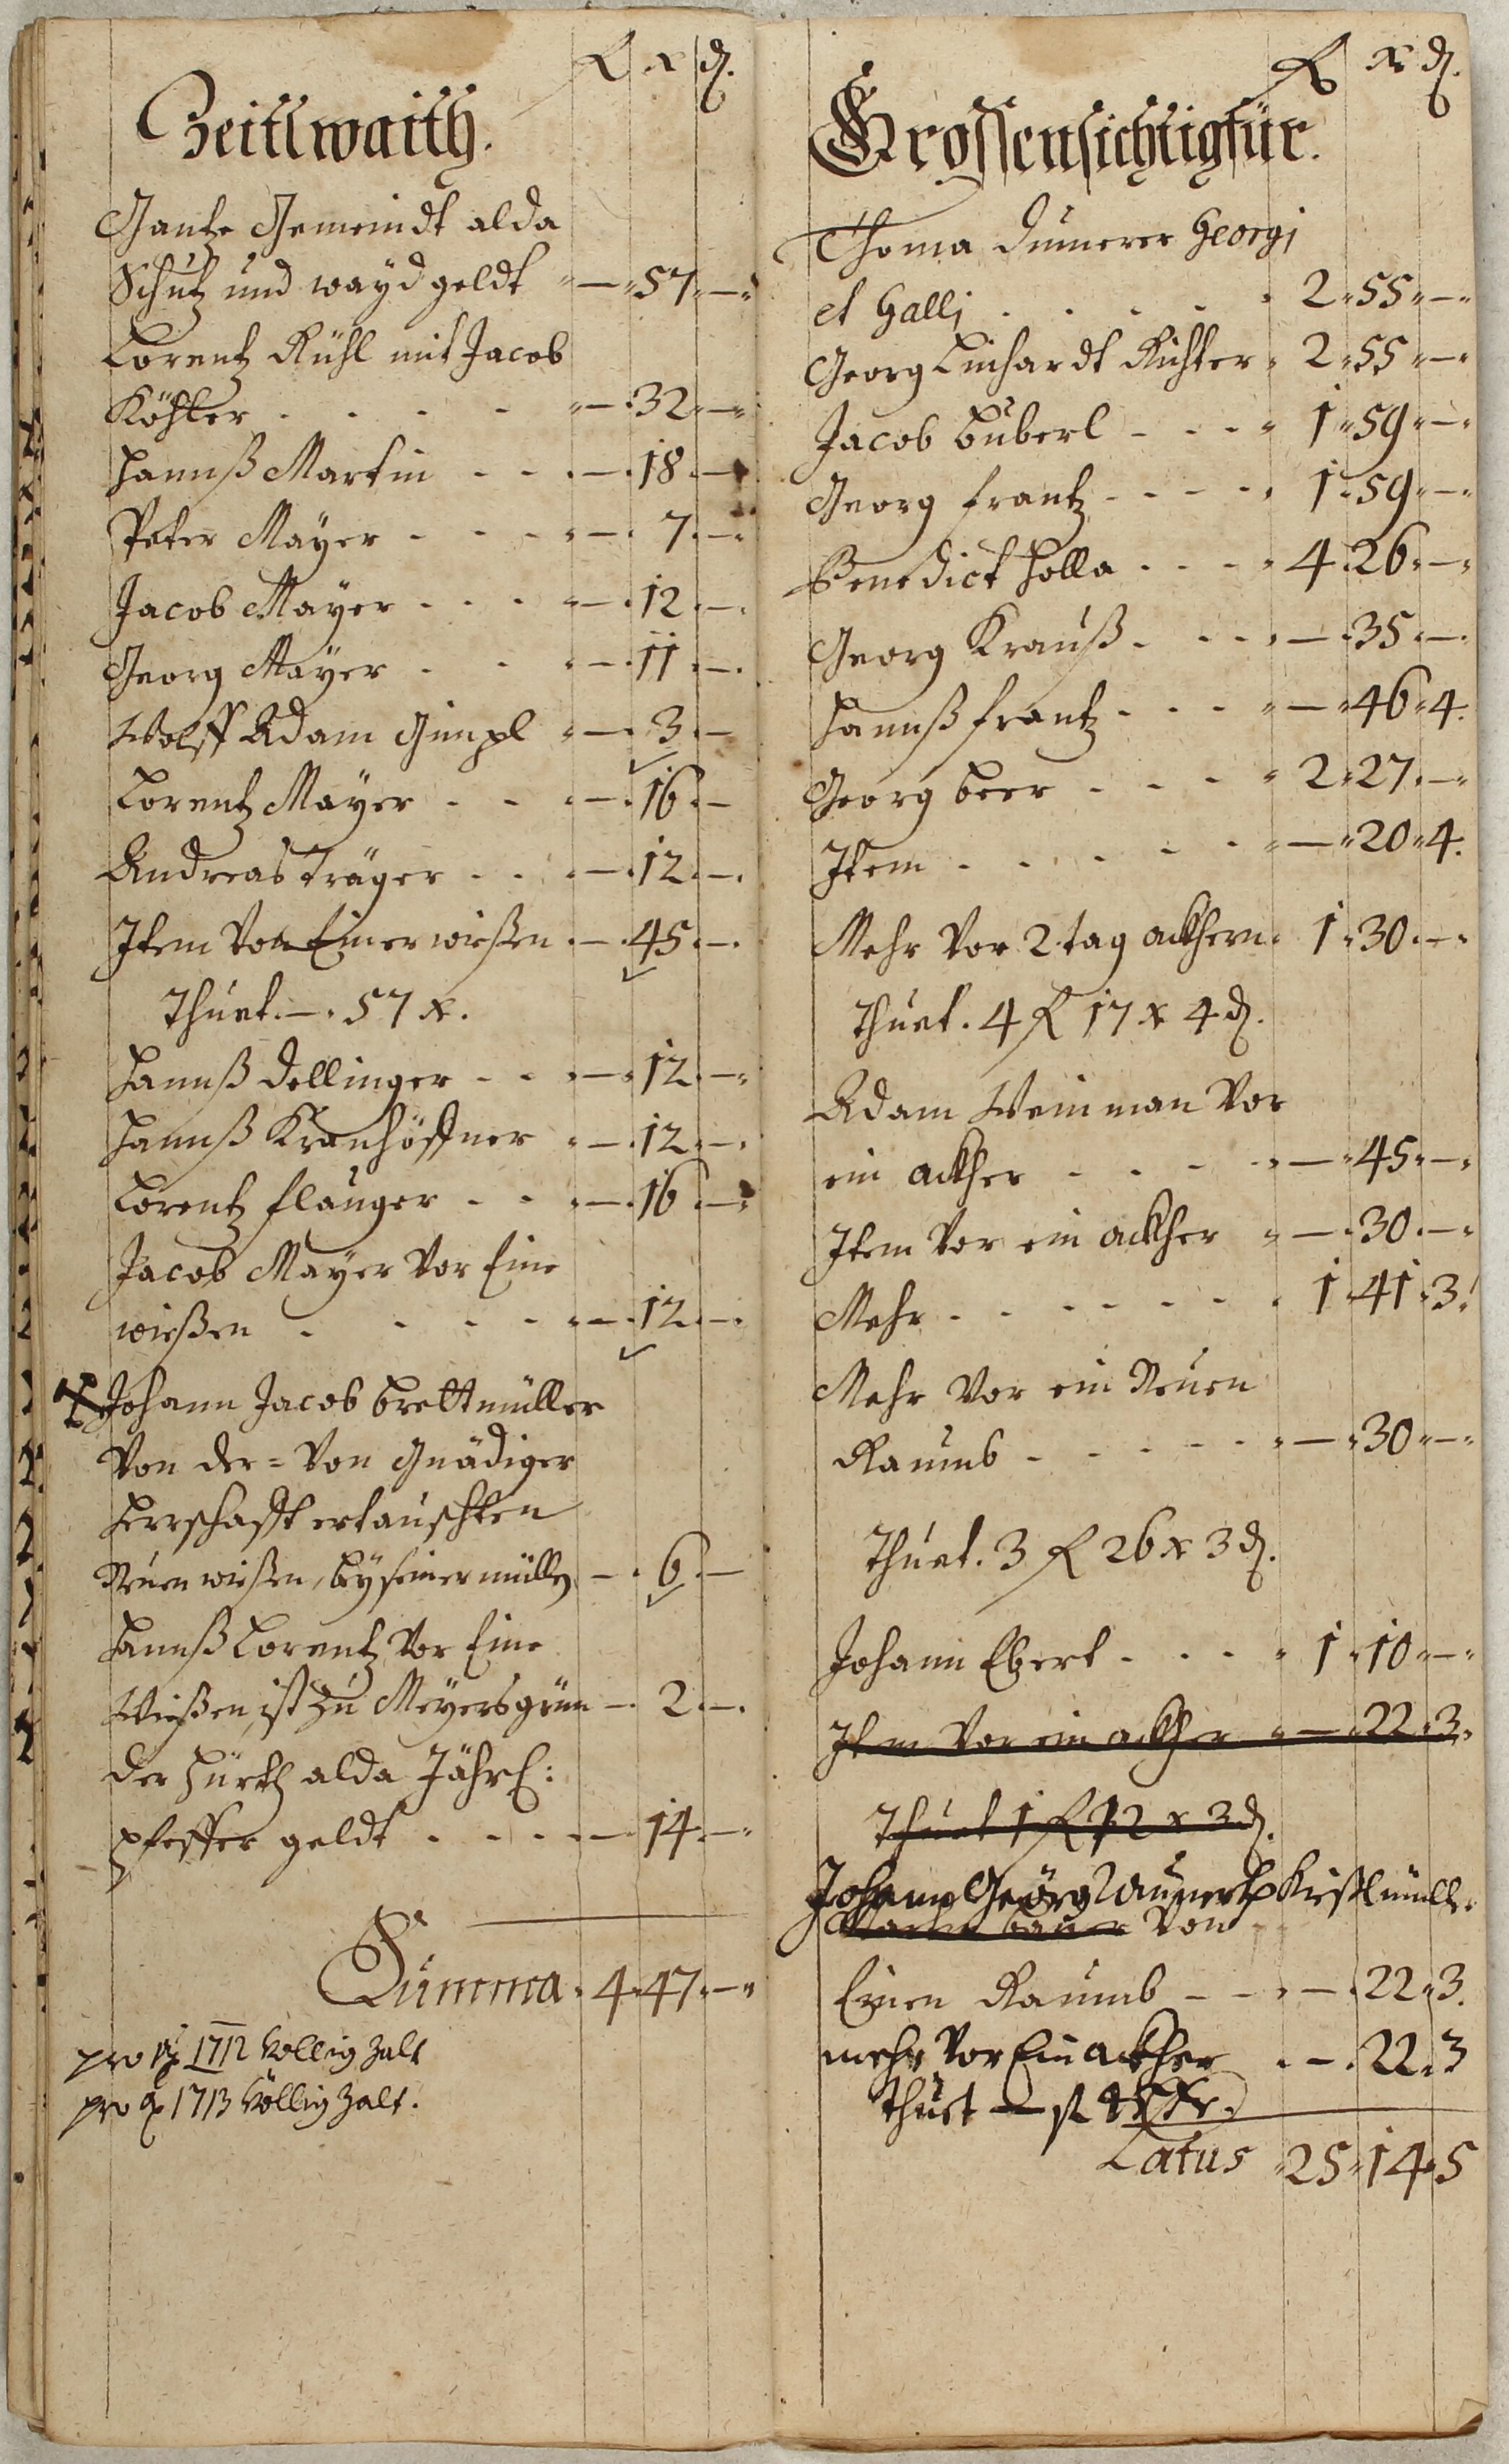 f x d.
Zeitlwaith.
Gantze Gemeindt alda
Schutz und wayd geldt - " — " 57 " — "
Lorentz Rühl mit Jacob
Köhler . . . . " — . 32 " — "
Hannß Martin - - . — . 18 . —
Peter Mayer - - - " — . 7 . — "
Jacob Mayer . . . " — . 12 . — .
Georg Mayer . . . — . 11 . — .
Wolff Adam Gimpl " — . 3 . —
Lorentz Mayer - - . — . 16 . —
Andreas Träger . . . — . 12 . — .
Item Von Einer wießen . — . 45 . — .
Thuet . — . 57 x .
Hannß Dellinger - - " — " 12 . — "
Hannß Kranhöffner " — . 12 . — .
Lorentz flauger - - " — . 16 . — "
Jacob Mayer Vor Eine
wießen . . . . " — . 12 . — .
Johann Jacob Brettmüller
Von der = Von Gnädiger
Herrschafft ertauschten
Neuen wießen, bey seiner mülln — . 6 . —
Hannß Lorentz Vor Eine
Wießen, ist zu Meyersgrün — . 2 . — .
Der Hürth alda Jährl:
pfeffer geldt . . . . — 14 . — "
Summa . 4 " 47 . — "
pro ao 1712 Vollig zalt
pro ao 1713 Völlig zalt .
f x d.
Grossensichtigfür.
Thoma Dumerer Georgi
et Galli . . . . . 2 " 55 " — "
Georg Linhardt Richter " 2 " 55 " — "
Jacob Buberl - - - " 1 " 59 " — "
Georg frantz - - - - " 1 . 59 " — "
Benedict Holla . . . " 4 . 26 " — "
Georg Krauß . . . " — . 35 . — .
Hannß frantz . . . " — " 46 " 4 .
Georg beer - - - " 2 " 27 . — "
Item . . . . . " — " 20 " 4 .
Mehr Vor 2 tag ackhern . 1 " 30 . — .
Thuet . 4 f 17 x 4 d .
Adam Weinman Vor
ein ackher - - - - " — " 45 " — "
Item Vor ein ackher " — . 30 . — "
Mehr . . . . . . 1 " 41 " 3 .
Mehr Vor ein Neuen
Raumb - - - - - " — " 30 " — "
Thuet . 3 f 26 x 3 d .
Johann Ebert . . . " 1 " 10 " — "
Item Vor ein ackher " — " 22 " 3 .
Thuet 1 f 32 x 3 d .
Johann Georg Kristlmüller
Von
Einen Raumb - - " — . 22 " 3 .
mehr Vor Ein ackher . — . 22 . 3
Thuet — fl
Latus " 25 " 14 " 5